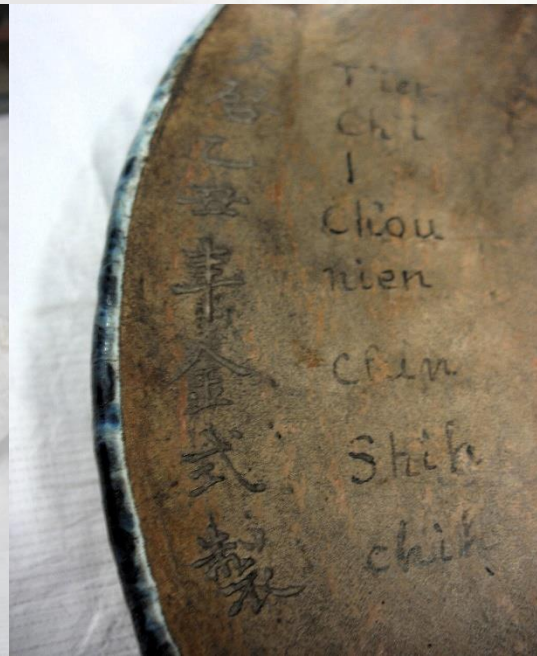 天啓乙丑年金式製
T'ien
Ch'i
I
Ch'ou
nien
Chin
Shih
chih